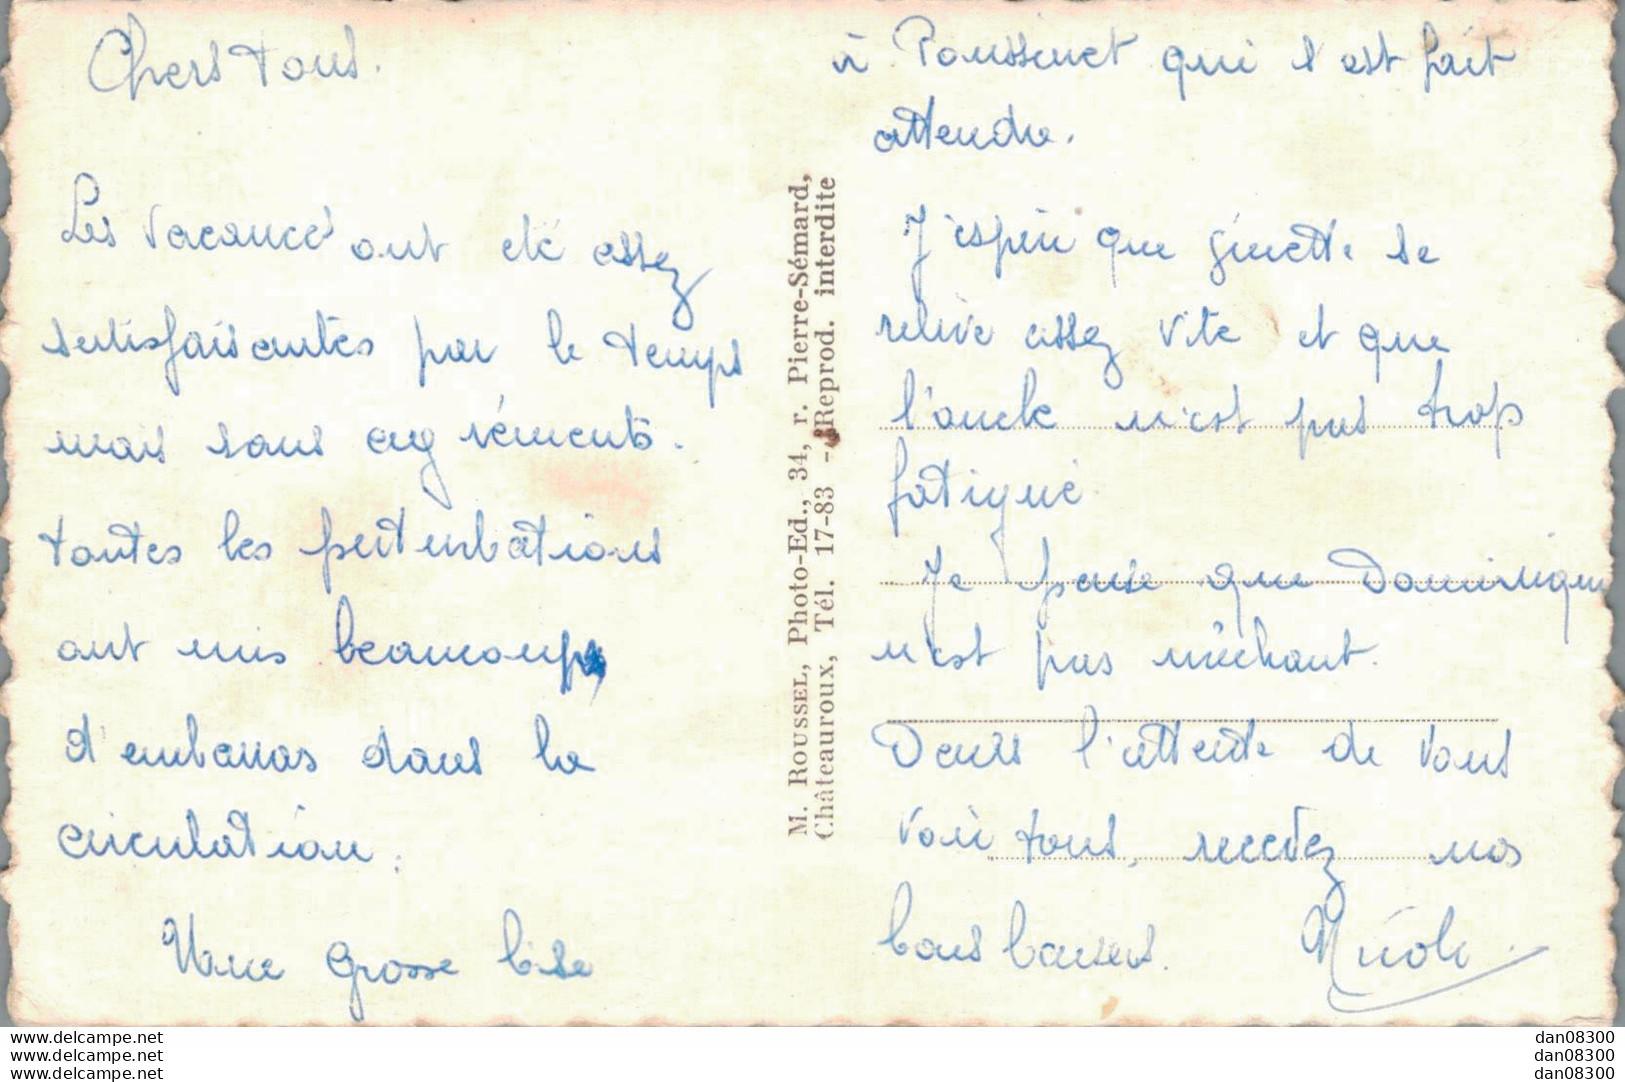 Chers tous.
Les vacances ont été assez
satisfaisantes par le temps
mais sans agréments.
toutes les perturbations
ont mis beaucoup
d'embarras dans la
circulation.
Une grosse bise
à Poussinet qui s'est fait
attendre.
J'espère que ginette se
relève assez vite et que
l'oncle n'est pas trop
fatigué
Je pense que Dominique
n'est pas méchant.
Dans l'attente de vous
voir tous, recevez nos
bons baisers. Nicole.
M. ROUSSEL, Photo-Ed., 34, r. Pierre-Sémard,
Châteauroux, Tél. 17-83 - Reprod. interdite
www.delcampe.net
www.delcampe.net
www.delcampe.net
dan08300
dan08300
dan08300